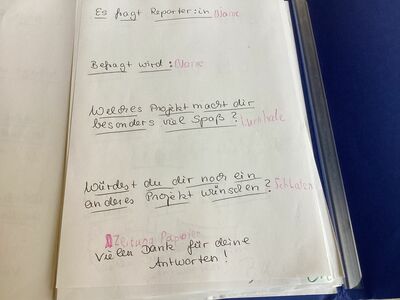 Es fragt Reporter:in Name
Befragt wird: Name
Welches Projekt macht dir
besonders viel Spaß? Turnhale
Würdest du dir noch ein
anderes Projekt wünschen? Schlafen
Zeitung Papojen
Vielen Dank für deine
Antworten!